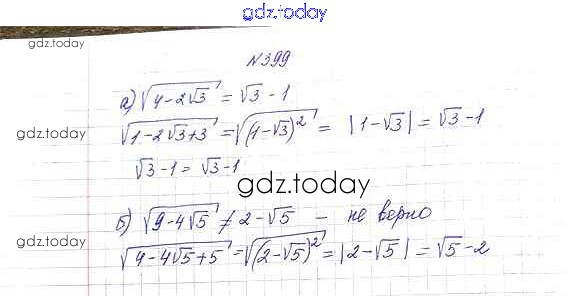 gdz.today
gdz.today
№399
а) √(4-2√3) = √3 - 1
gdz.today
√(1-2√3+3) = √((1-√3)²) = |1-√3| = √3-1
√3-1 = √3-1
gdz.today
б) √(9-4√5) ≠ 2-√5 - не верно
gdz.today
√(4-4√5+5) = √((2-√5)²) = |2-√5| = √5-2